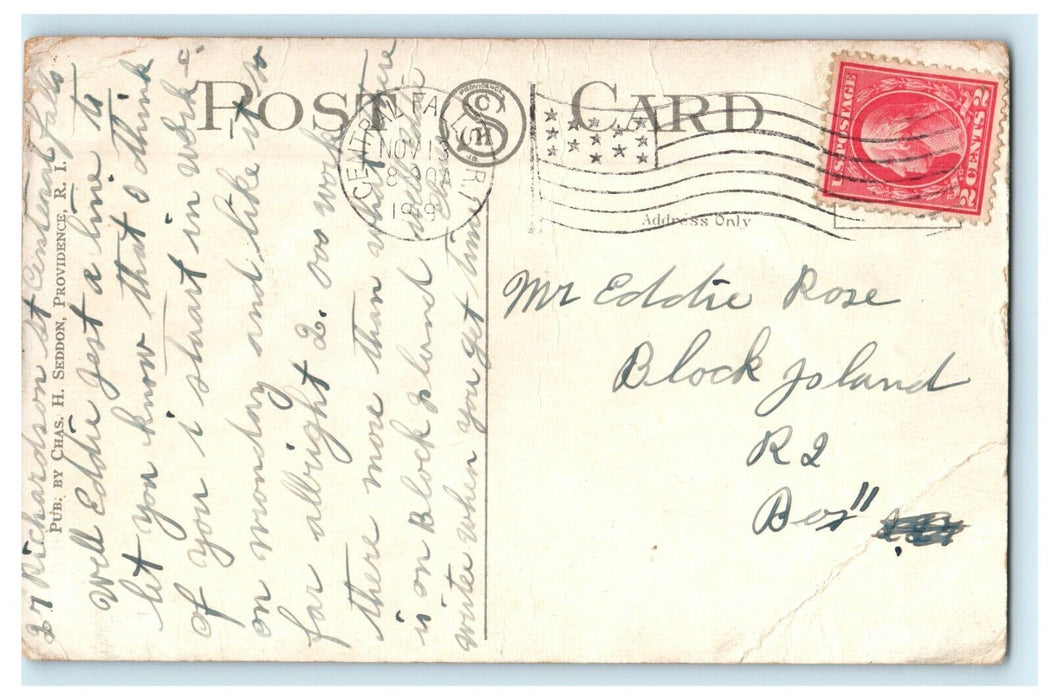 POST CARD
PROVIDENCE
CENTRAL FALLS R.I.
NOV 13
1919
U.S. POSTAGE
2 CENTS 2
Address Only
Mr Eddie Rose
Block Island
R 2
Box 11
PUB. BY CHAS. H. SEDDON, PROVIDENCE, R. I.
27 Richardson st Centeral falls
Well Eddie jest a line to
let you know that I think
of you i start in work
on monday and like it so
far allright 2.00 work
there more than whot there
is on Block Island
write when you get time